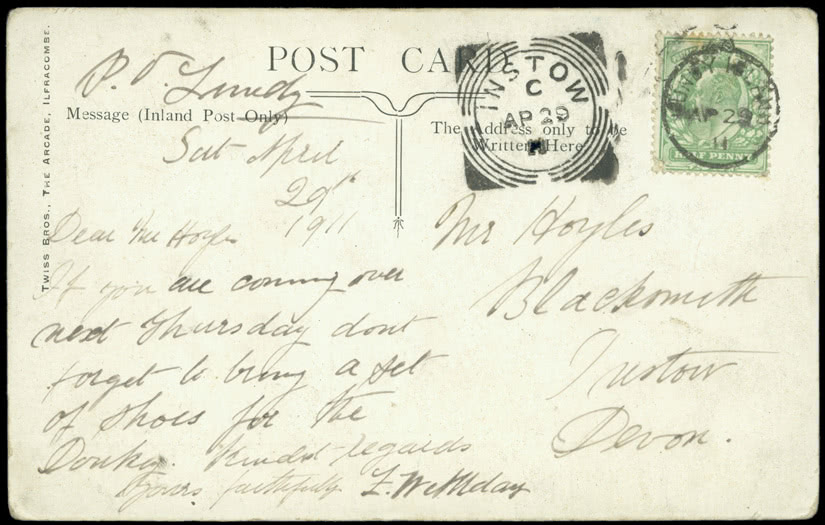 POST CARD
P.O. Lundy
Message (Inland Post Only)
The Address only to be
Written Here
INSTOW
C
AP 29
11
LUNDY ISLAND
AP 29
11
HALF PENNY
Sat April
29th
1911
Dear Mr Hoyles
If you are coming over
next Thursday dont
forget to bring a set
of shoes for the
Donky. Kindest regards
Yours faithfully
Mr Hoyles
Blacksmith
Instow
Devon.
TWISS BROS., THE ARCADE, ILFRACOMBE.